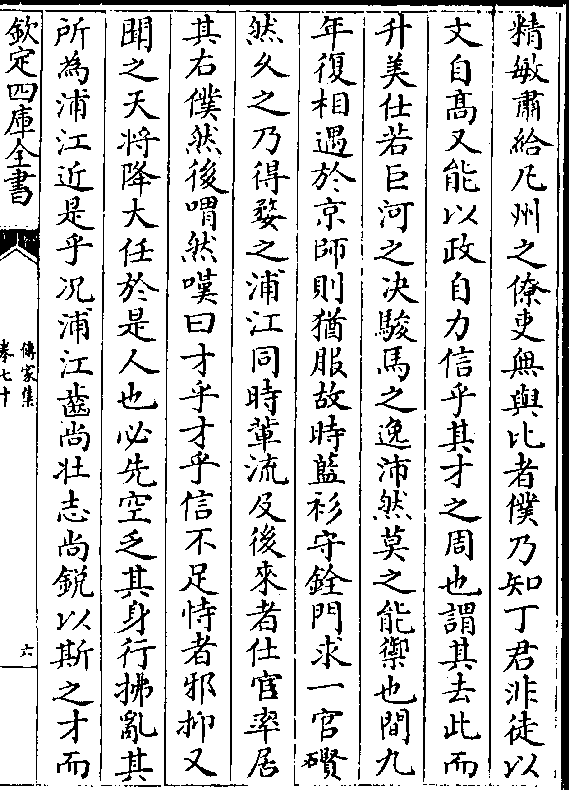 精敏肅給凡州之僚吏無與比者僕乃知丁君非徒以
文自高又能以政自力信乎其才之周也謂其去此而
升美仕若巨河之决駿馬之逸沛然莫之能禦也間九
年復相遇於京師則猶服故時藍衫守銓門求一官礥
然乆之乃得婺之浦江同時軰流及後來者仕官率居
其右僕然後喟然嘆曰才乎才乎信不足恃者邪抑又
聞之天将降大任於是人也必先空乏其身行拂亂其
所為浦江近是乎况浦江齒尚壯志尚鋭以斯之才而
欽定四庫全書
傳家集
卷七十
六